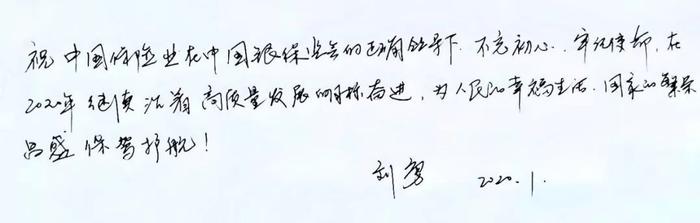 祝中国保险业在中国银保监会的正确领导下，不忘初心、牢记使命，在
2020年继续沿着高质量发展的目标奋进，为人民的幸福生活、国家的繁荣
昌盛保驾护航！
刘勇 2020.1.